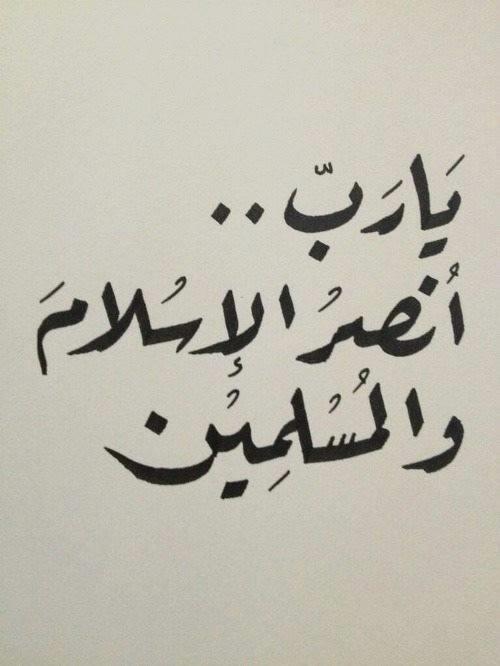 يَارَبّ..
اُنصرُ الإسُلامَ
والمُسْلِمِيْن